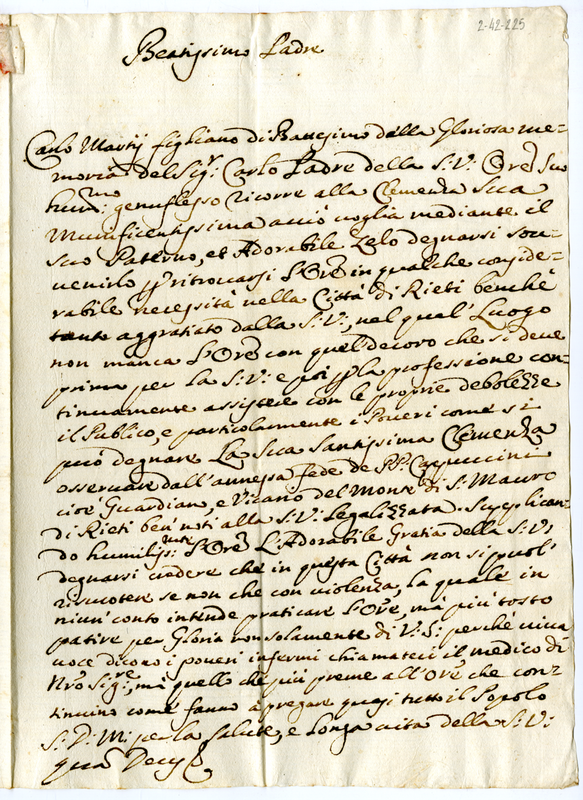 2-42-225
Beatissimo Padre
Carlo Martij figliano di Battesimo della Gloriosa me-
moria del Sigr: Carlo Padre della S: V: Orẽ Suo
hum:mo genuflesso ricorre alla Clemenza Sua
Munificentissima acciò voglia mediante il
suo Patterno, et Adorabile Zelo degnarsi souue-
nirlo ritrouarsi l'Orẽ in qualche conside-
rabile necessità nella Città di Rieti benchè
tanto aggratiato dalla S: V:, nel qual' Luogo
non manca l'Orẽ con quel decoro che si deue
prima per la S: V: e poi la professione con-
tinuamente assistere con le proprie debolezze
il Publico, e particolarmente i Poueri come si
può degnare La Sua Santissima Clemenza
osseruare dall'annessa fede de PP. Cappuccini
cioè Guardian, e Vicario del Monte di S. Mauro
di Rieti ben noti alla S: V: Legalizzata. Supplican-
do humiliss:mte l'Orẽ L'Adorabile Gratia della S: V:
degnarsi credere che in questa Città non si puol'
riscotere se non che con violenza, la quale in
niun' conto intende praticare l'Orẽ, mà più tosto
patire per Gloria non solamente di V: S: perchè viua
uoce dicono i poueri infermi chiamateci il medico di
Nro Sigre, mà quello che più preme all'Orẽ che con-
tinuino come fanno à pregare quasi tutto il Popolo
S: D: M: per la Salute, e Longa uita della S: V: